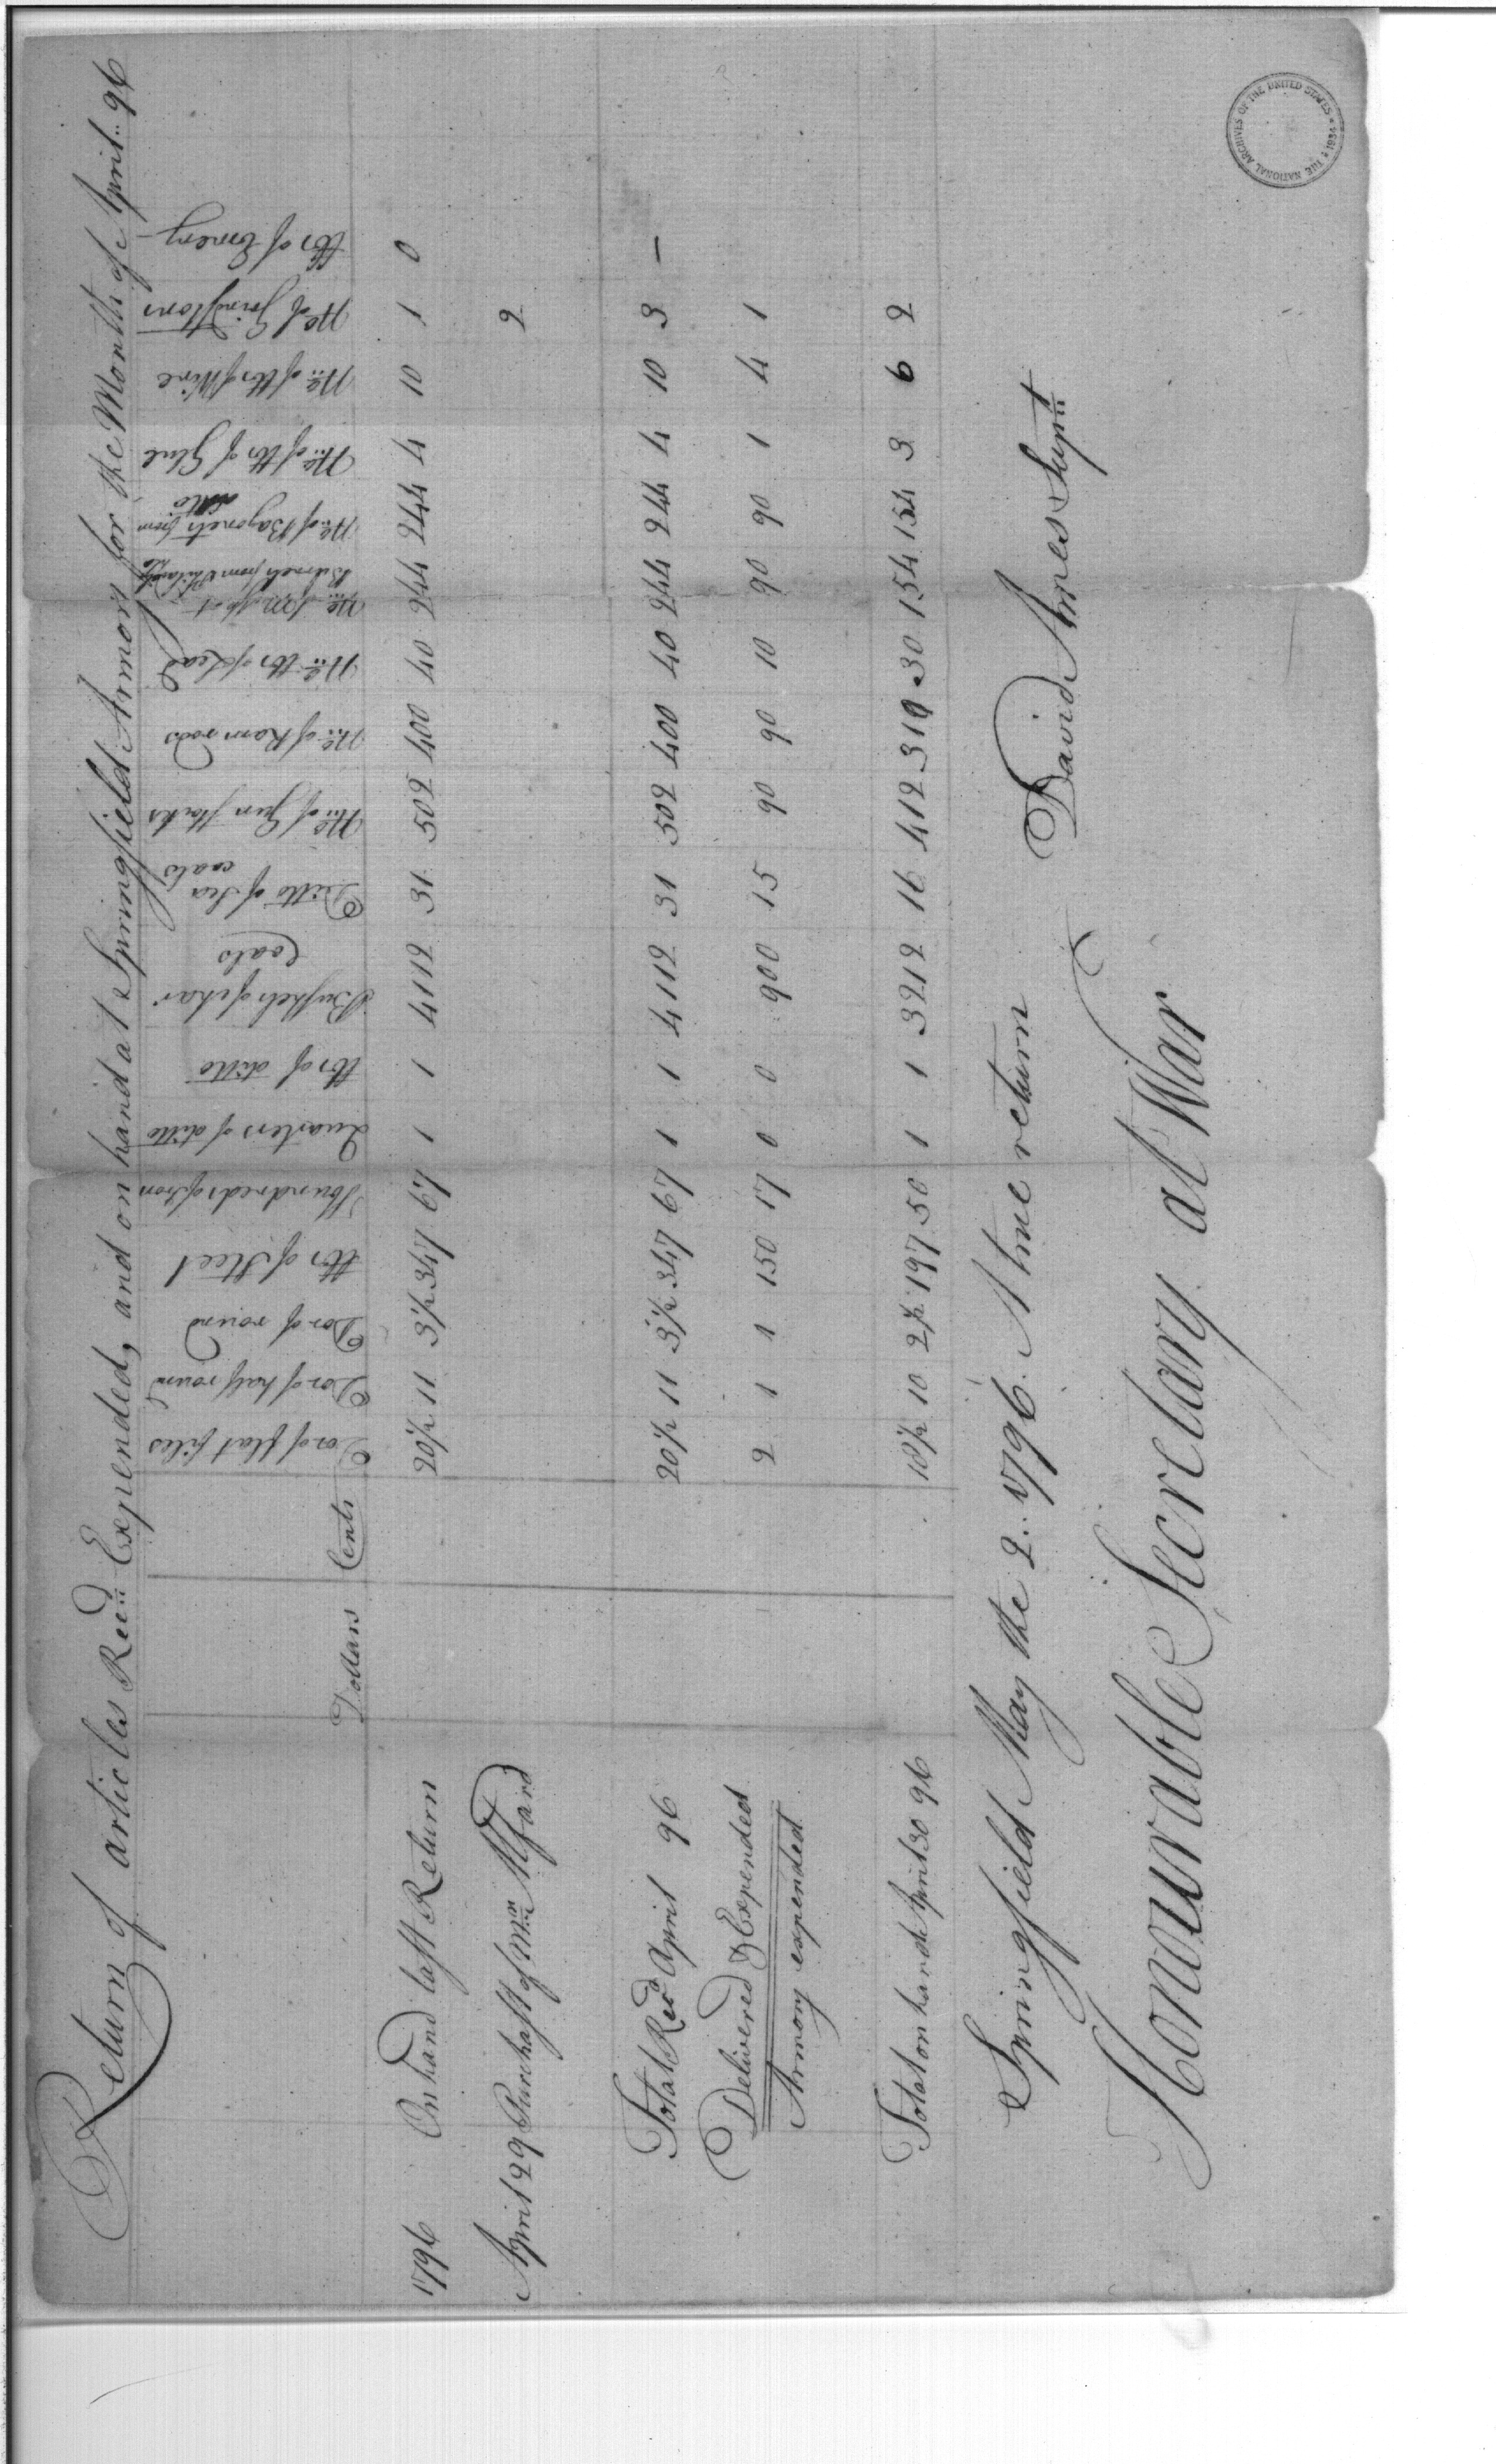 Return of articles Recd Expended, and on hand at Springfield Armory for the Month of April.. 96
Dollars Cents Doz of flat files Doz of half round Doz of round lbs of Steel Hundreds of Iron Quarters of ditto lbs of ditto Bushels of char Coals Ditto of Sea coals No of Gun stocks No of Ram rods No lbs of Lead No of No of Bayonets from ditto No of lbs of Glue No of lbs of Wire No of Grindstons lbs of Emery
1796 On hand last Return 20½ 11 3½ 347 67 1 1 4112 31 502 400 40 244 244 4 10 1 0
April 29 Purchast of Wm 2
Total Recd April 96 20½ 11 3½ 347 67 1 1 4112 31 502 400 40 244 244 4 10 3 —
Delivered & Expended 2 1 1 150 17 0 0 900 15 90 90 10 90 90 1 4 1
Armory expended
Total on hand April 30 96 18½ 10 2½ 197 50 1 1 3212 16 412 310 30 154 154 3 6 2
Springfield May the 2.. 1796. A true return David Ames Supt
Honourable Secretary at War
THE NATIONAL ARCHIVES OF THE UNITED STATES 1934